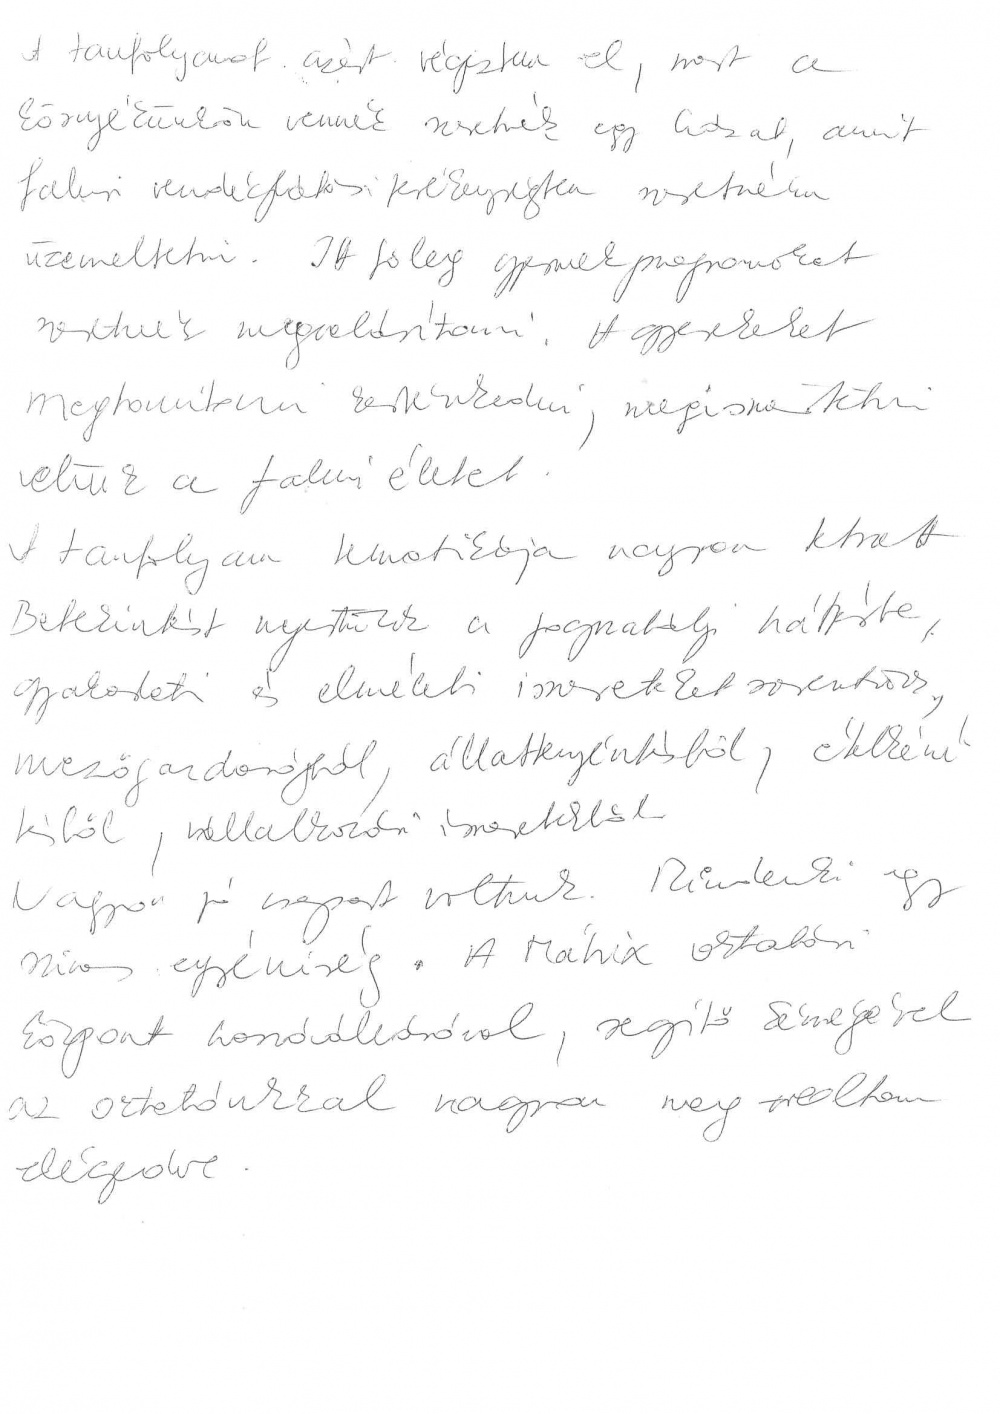 A tanfolyamot azért végeztem el, mert a
környékünkön vennék szeretnék egy házat, amit
falusi vendéglátási tevékenységben szeretnénk
üzemeltetni. Itt főleg gyermekprogramokat
szeretnék megvalósítani. A gyerekeket
megtanítani kertészkedni, megismertetni
velük a falusi életet.
A tanfolyam tematikája nagyon tetszett
Betekintést nyertünk a jogszabályi háttérbe,
gyakorlati és elméleti ismereteket szereztünk,
mezőgazdaságból, állattenyésztésből, ételkészí-
tésből, vállalkozási ismeretekből
Nagyon jó csapat voltunk. Mindenki egy
színes egyéniség. A Mátrix oktatási
központ hozzáállásával, segítő
az oktatónkkal nagyon meg voltam
elégedve.